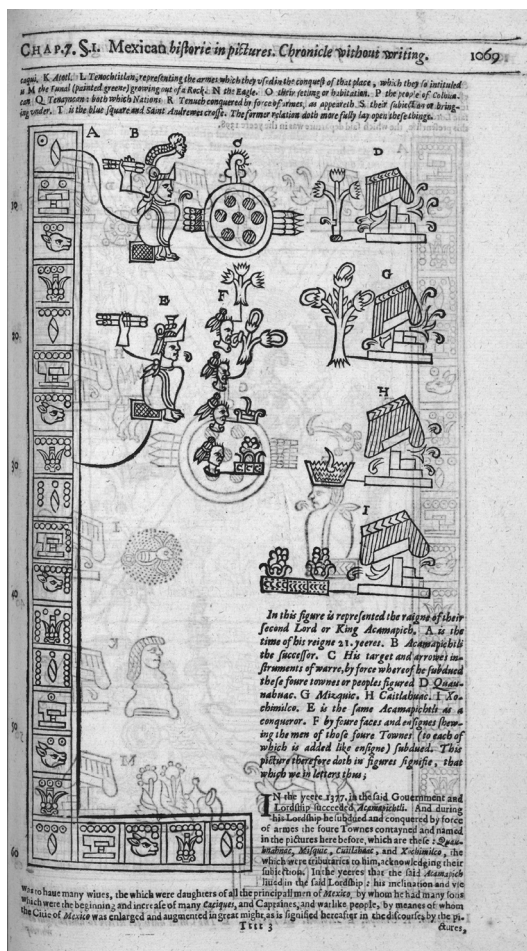 CHAP.7. §.I. Mexican historie in pictures. Chronicle without writing. 1069
caqui. K Atotl. L Tenochtitlan, representing the armes which they used in the conquest of that place, which they so intituled
is M the Tunal (painted greene) growing out of a Rock. N the Eagle. O their seting or habitation. P the people of Colhua-
can Q Tenayucan: both which Nations R Tenuch conquered by force of armes, as appeareth S. their subiection or bring-
ing under. T is the blue square and Saint Andrewes crosse. The former relation doth more fully lay open these things.
A B C D
10
20
E F G
H
30
I
40
60
In this figure is represented the raigne of their
second Lord or King Acamapich. A is the
time of his reigne 21. yeeres. B Acamapichtli
the successor. C His target and arrowes in-
struments of warre, by force whereof he subdued
these foure townes or peoples figured D Quau-
nahuac. G Mizquic. H Cuitlahuac. I Xo-
chimilco. E is the same Acamapichtli as a
conqueror. F by foure faces and ensignes shew-
ing the men of those foure Townes (to each of
which is added like ensigne) subdued. This
picture therefore doth in figures signifie, that
which we in letters thus;
IN the yeere 1377. in the said Gouernment and
Lordship succeeded Acamapichtli. And during
his Lordship he subdued and conquered by force
of armes the foure Townes contayned and named
in the pictures here before, which are these: Quau-
hnahuac, Misquic, Cuitlahuac, and Xochimilco, the
which were tributaries to him, acknowledging their
subiection. In the yeeres that the said Acamapich
liued in the said Lordship: his inclination and vse
was to haue many wiues, the which were daughters of all the principall men of Mexico, by whom he had many sons
which were the beginning and increase of many Caziques, and Captaines, and warlike people, by meanes of whom
the Citie of Mexico was enlarged and augmented in great might, as is signified hereafter in the discourses, by the pi-
Tttt 3 ctures,